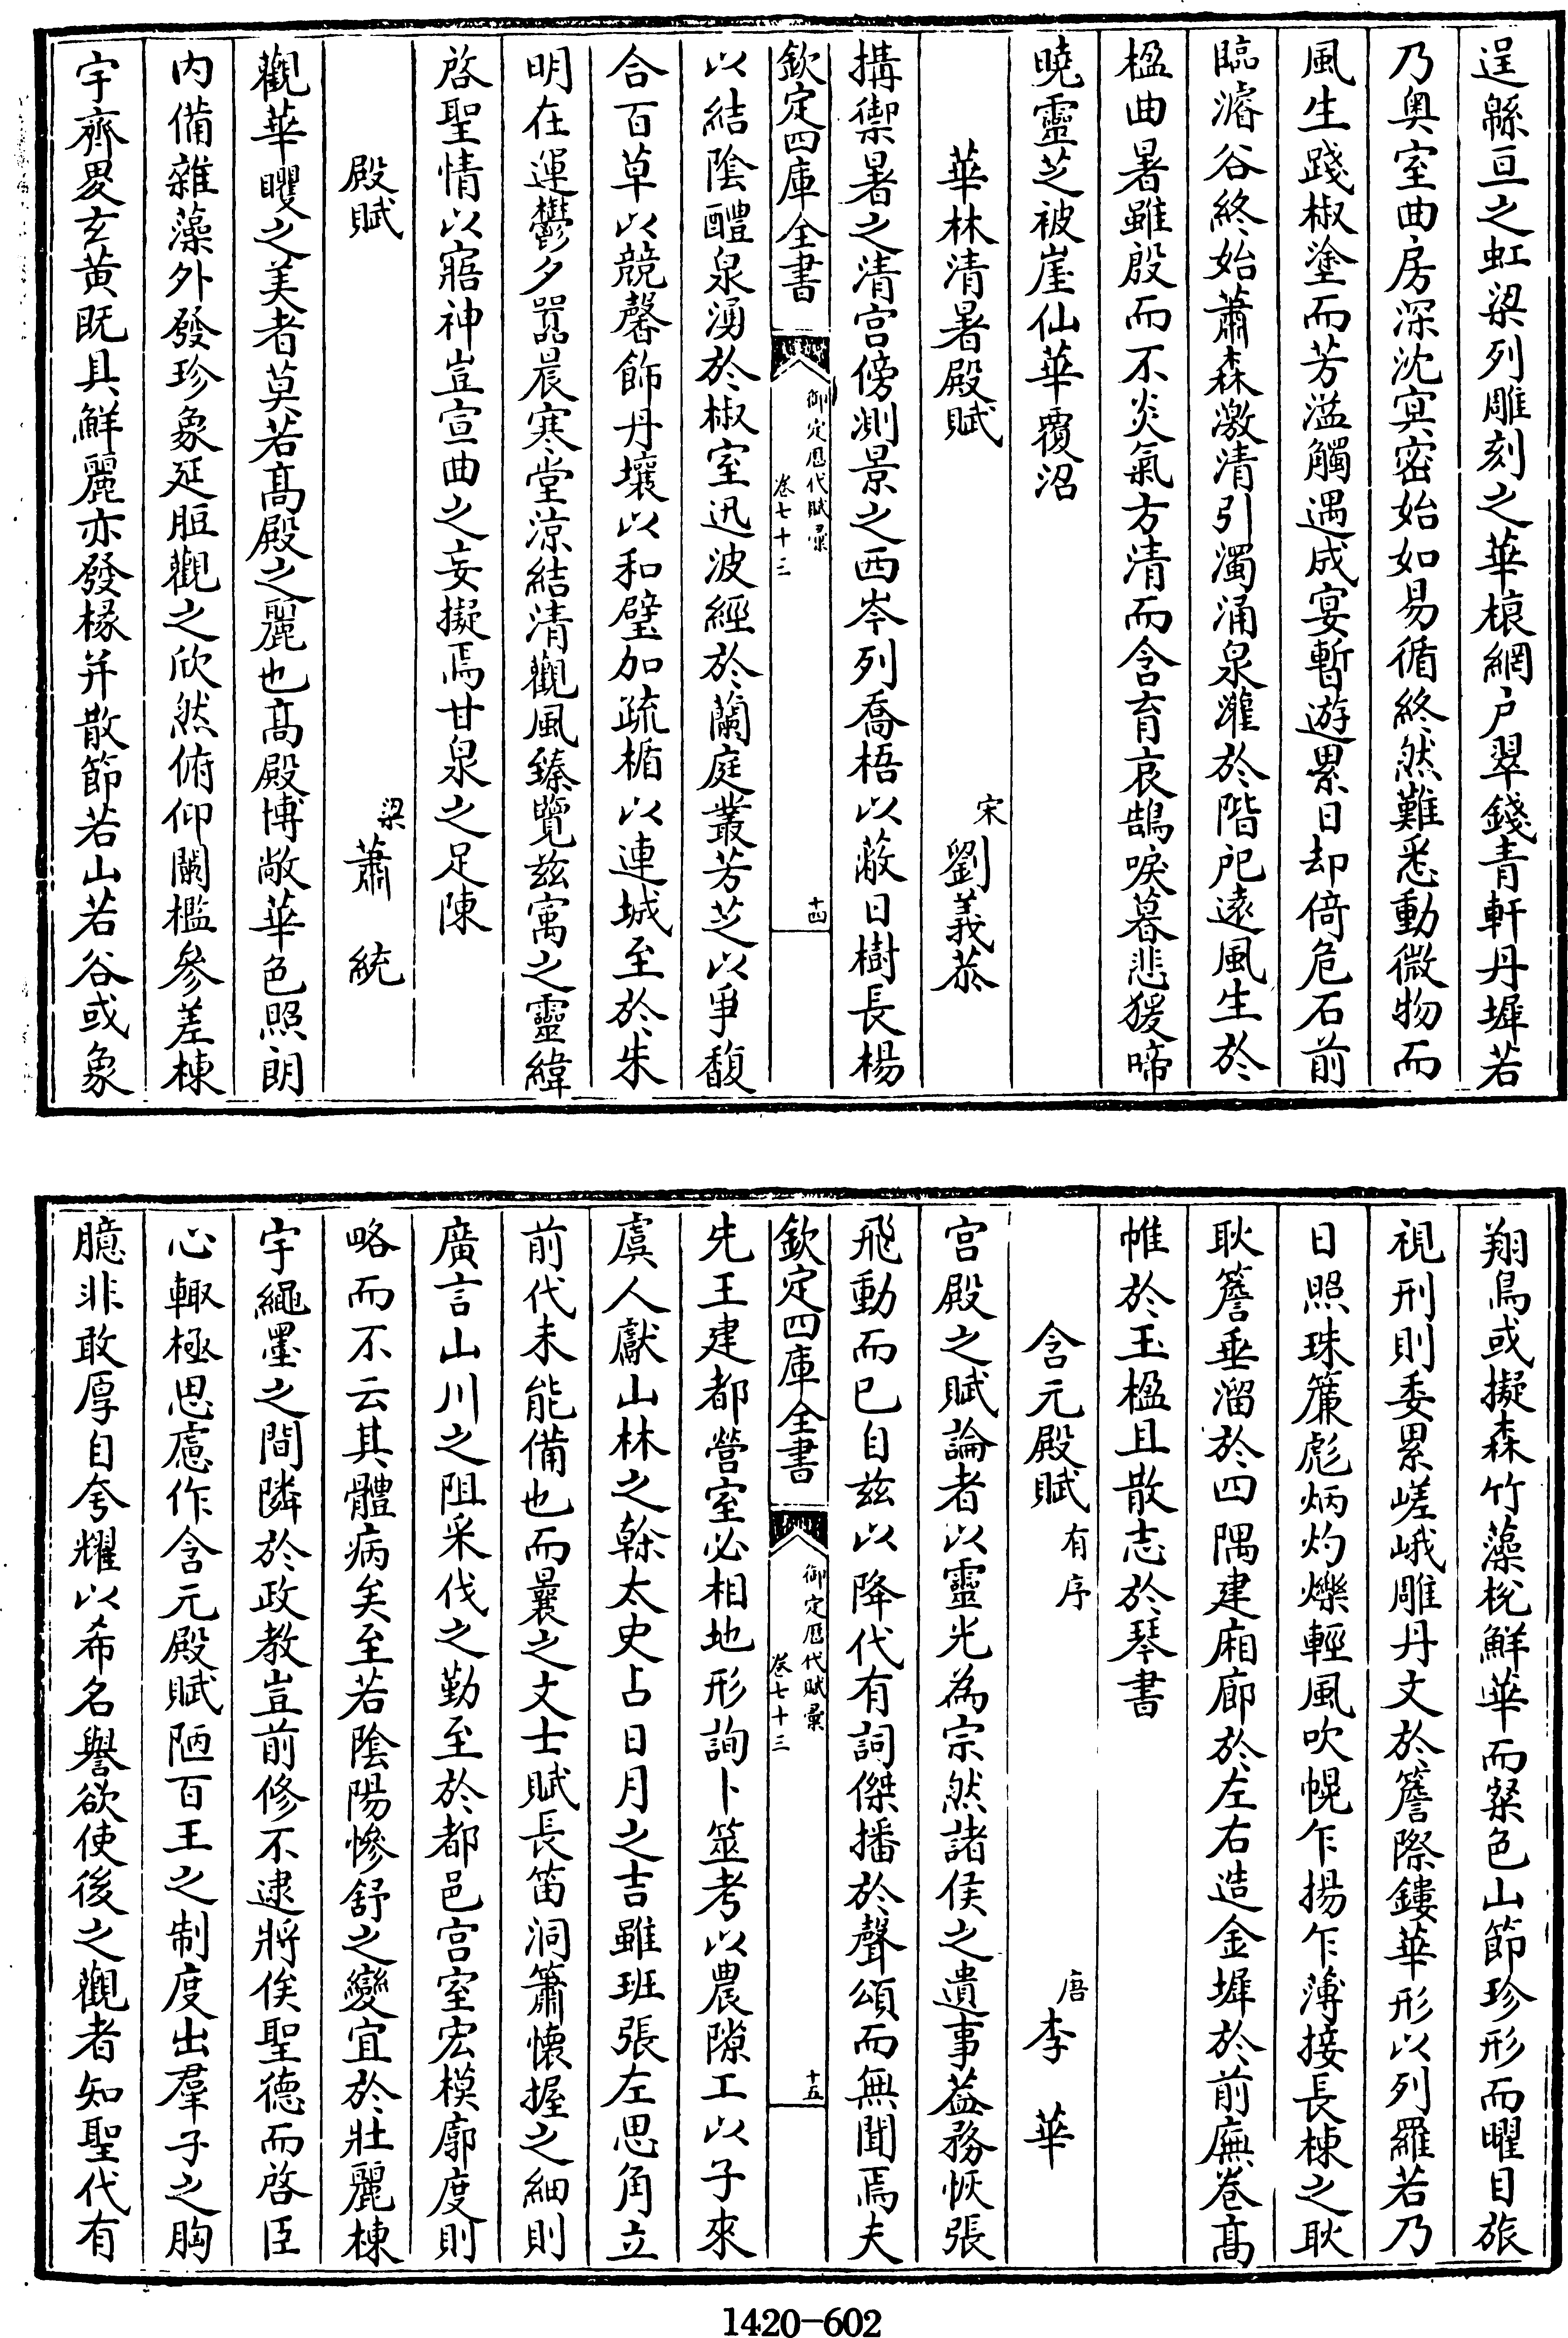 逞緜亘之虹梁列雕刻之華榱網戶翠錢青軒丹墀若
乃奥室曲房深沈㝠密始如易循終然難悉動微物而
風生踐椒塗而芳溢觸遇成宴暫遊累日却倚危石前
臨濬谷終始蕭森激清引濁涌泉灌於階戺逺風生於
楹曲暑雖殷而不炎氣方清而含育哀鵠唳暮悲猨啼
曉靈芝被崖仙華覆沼
華林清暑殿賦 宋劉義恭
搆禦暑之清宫傍測景之西岑列喬梧以蔽日樹長楊
欽定四庫全書 御定歴代賦彚 卷七十三 十四
以結隂醴泉湧於椒室迅波經於蘭庭叢芳芝以爭馥
合百草以競馨飾丹壤以和璧加疏楯以連城至於朱
明在運鬱夕嚣晨寒堂凉結清觀風臻覽兹㝢之靈緯
啓聖情以寤神豈宣曲之妄擬焉甘泉之足陳
殿賦 梁蕭統
觀華曖之美者莫若髙殿之麗也髙殿博敞華色照朗
内備雜藻外發珍象延脰觀之欣然俯仰闌檻參差棟
宇齊畟玄黄既具鮮麗亦發椽并散節若山若谷或象
翔鳥或擬森竹藻梲鮮華而粲色山節珍形而曜目旅
視刑則委累嵯峨雕丹文於簷際鏤華形以列羅若乃
日照珠簾彪炳灼爍輕風吹幌乍揚乍薄接長棟之耿
耿簷垂溜於四隅建廂廊於左右造金墀於前廡卷髙
帷於玉楹且散志於琴書
含元殿賦有序 唐李華
宫殿之賦論者以靈光為宗然諸侯之遺事葢務恢張
飛動而已自兹以降代有詞傑播於聲頌而無聞焉夫
欽定四庫全書 御定歴代賦彚 卷七十三 十五
先王建都營室必相地形詢卜筮考以農隙工以子來
虞人獻山林之榦太史占日月之吉雖班張左思角立
前代未能備也而曩之文士賦長笛洞簫懷握之細則
廣言山川之阻采伐之勤至於都邑宫室宏模廓度則
略而不云其體病矣至若隂陽慘舒之變宜於壯麗棟
宇繩墨之間隣於政教豈前修不逮將俟聖德而啓臣
心輙極思慮作含元殿賦陋百王之制度出羣子之胸
臆非敢厚自夸耀以希名譽欲使後之觀者知聖代有
1420-602